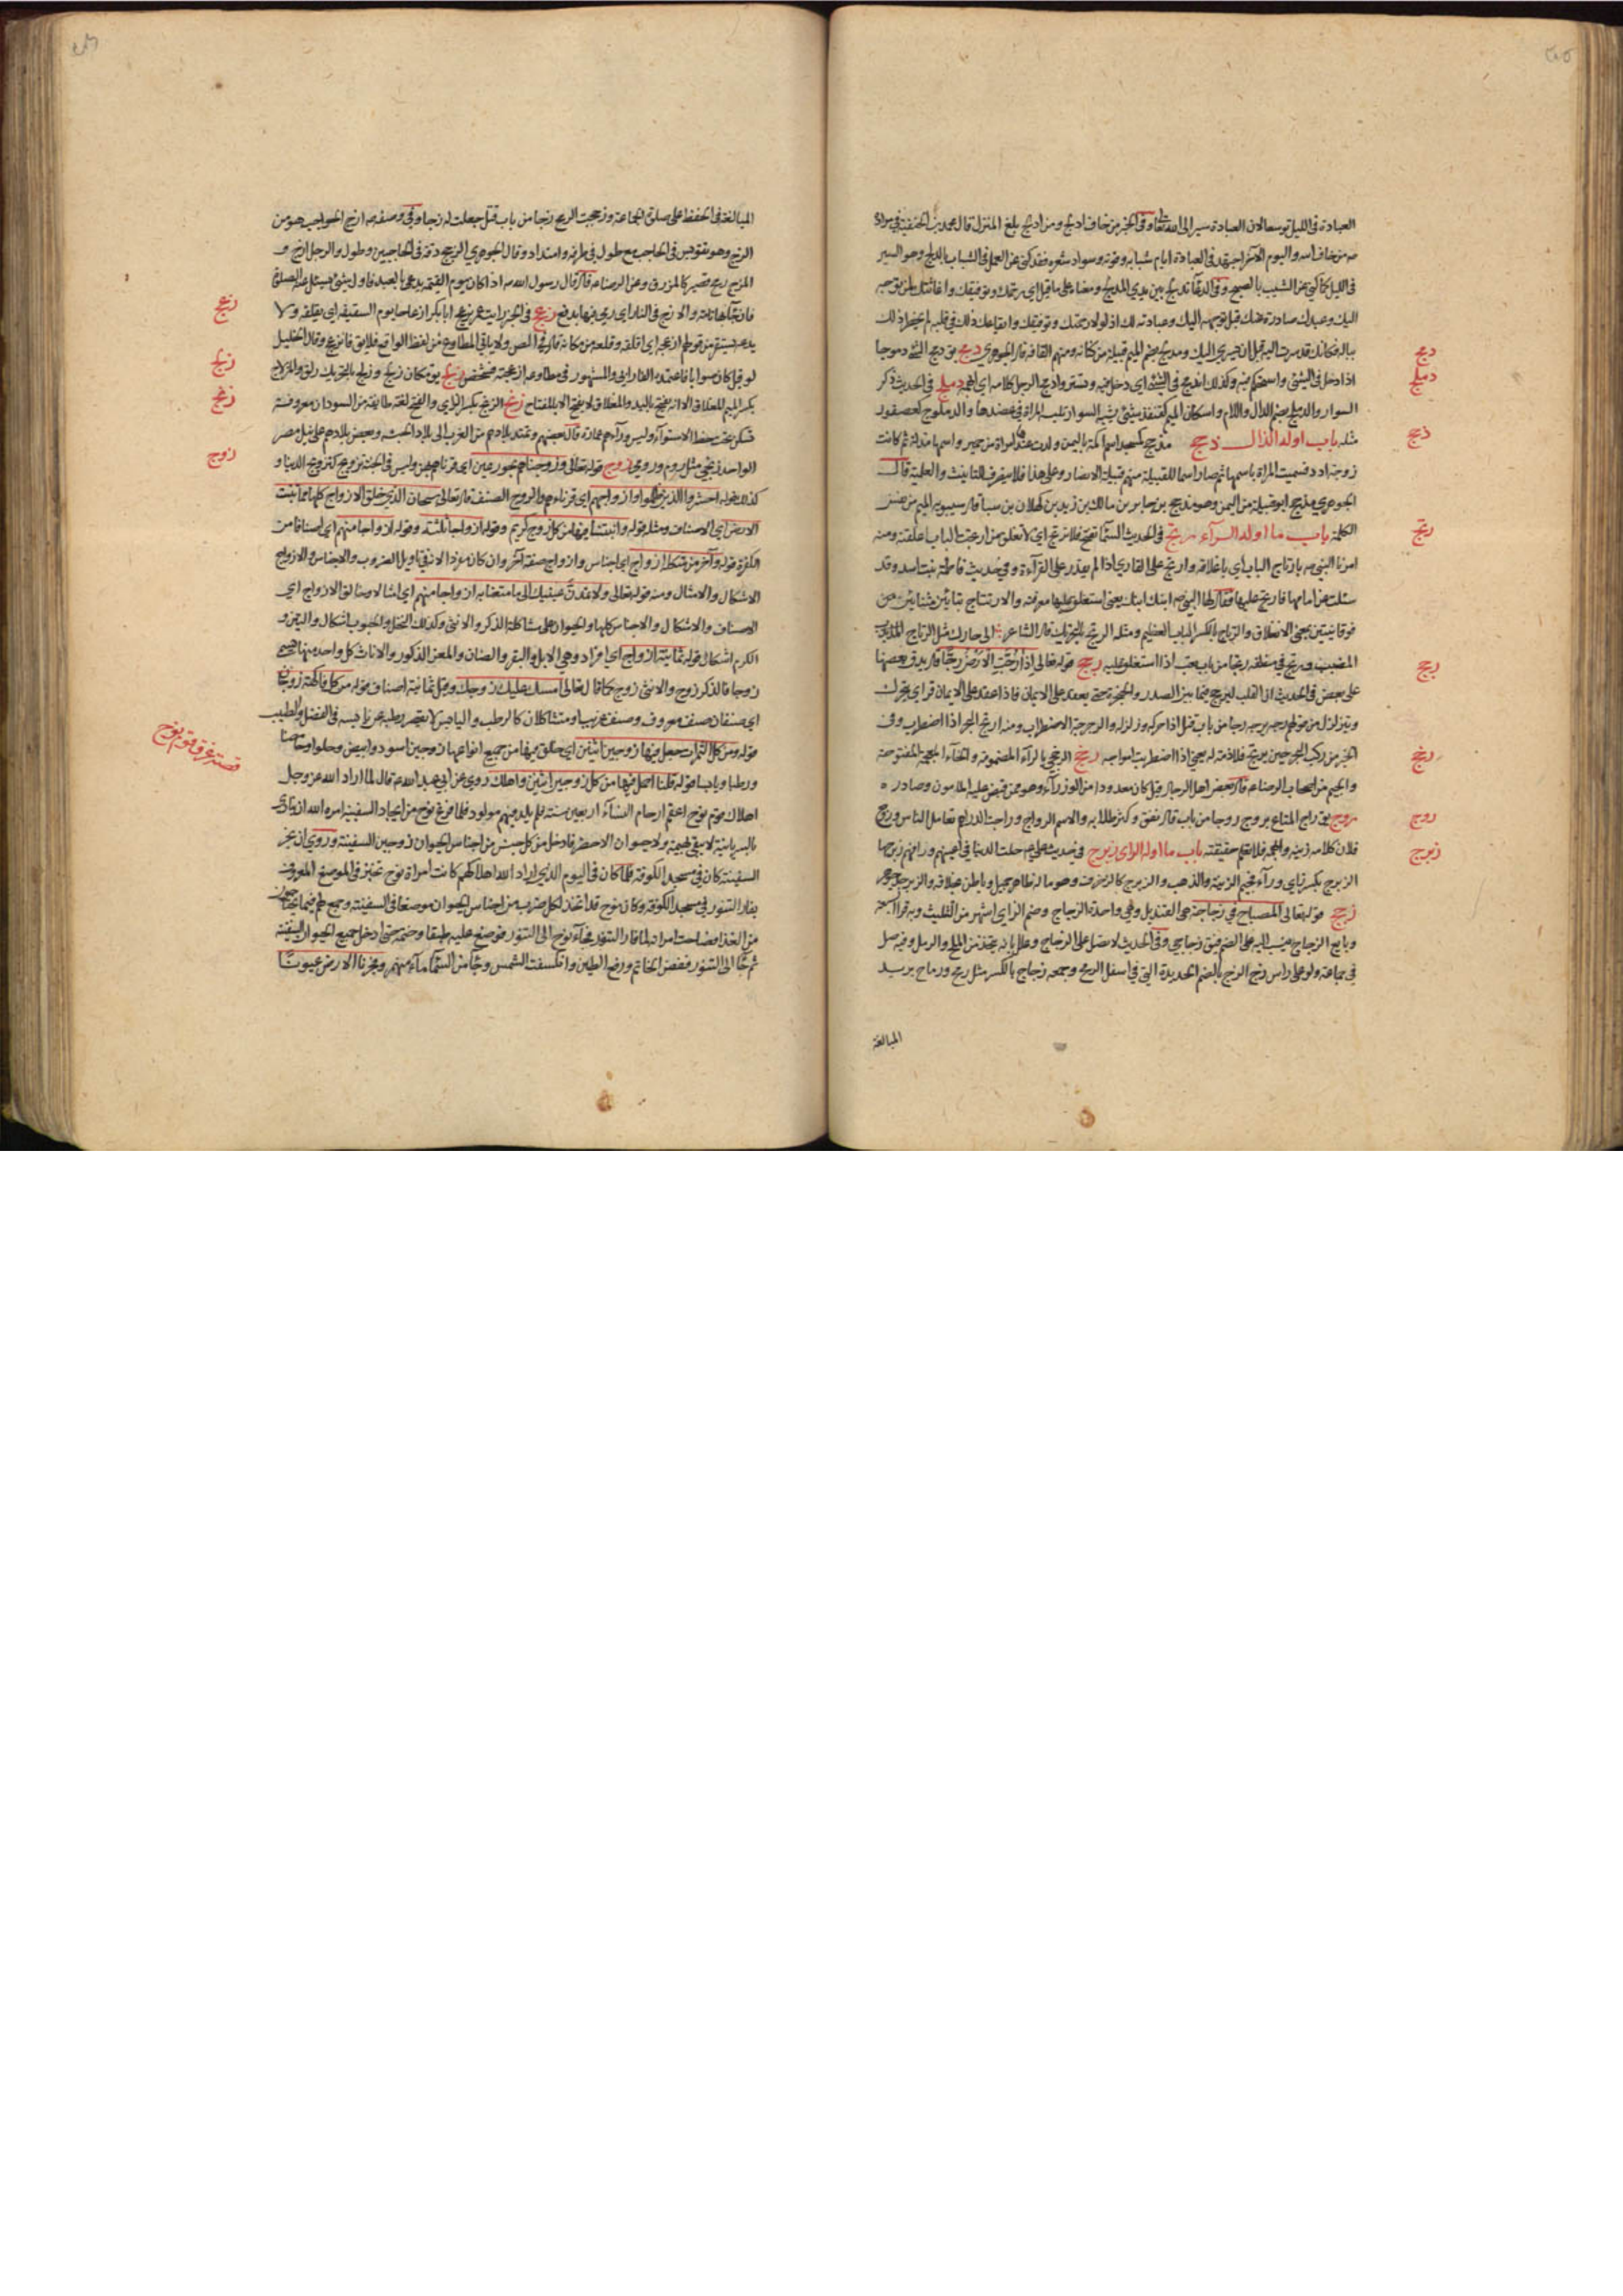 العبادة في الليل توسعا لان العبادة سير الى الله تعالى وفي الخبر من خاف ادلج ومن ادلج بلغ المنزل قال محمد بن الحنفية
من خاف الله واليوم الآخر اجتهد في العبادة ايام شبابه وقوته وسواد شعره فقد كنى عن العمل في الشباب بالدلج وهو السير
في الليل كما كنى عن الشيب بالصبح وفي الدعاء تدلج بين يدي المدلج ومعناه على ما قيل اي رحمتك وتوفيقك واعانتك لمن توجه
اليك وعبدك صادرة عنك قبل توجهه اليك وعبادته لك اذ لولا رحمتك وتوفيقك وايقاعك ذلك في قلبه لم يخطر ذلك
بباله فكانك قد سريت اليه قبل ان يسري اليك ومدلج بضم الميم قبيلة من كنانة ومنهم القافة قاله الجوهري دمج يق دمج الشيء دموجا
اذا دخل في الشيء واستحكم فيه وكذلك اندمج في الشيء اي دخل فيه وتستر وادمج الرجل كلامه اي ابهمه دملج في الحديث ذكر
السوار والدملج بضم الدال واللام واسكان الميم كقنفذ شيء يشبه السوار تلبسه المراة في عضدها والدملوج كعصفور
مثله باب ما اوله الذال ذحج مذحج كمسجد اسم اكمة باليمن ولدت عندها امراة من حمير واسمها مدلة ثم كانت
زوجة ادد فسميت المراة باسمها ثم صار اسما للقبيلة منهم قبيلة الانصار وعلى هذا فلا ينصرف للتانيث والعلمية قال
الجوهري مذحج ابو قبيلة من اليمن وهو مذحج بن جابر بن مالك بن زيد بن كهلان بن سبا قال سيبويه الميم من نفس
الكلمة باب ما اوله الرآء رتج في الحديث السماء تفتح فلا ترتج اي لا تغلق من ارتجت الباب اغلقته ومنه
امرنا النبي ص بارتاج الباب اي باغلاقه وارتج على القاري اذا لم يقدر على القرآءة وفي حديث فاطمة بنت اسد وقد
سئلت عن امامها فارتج عليها فقال لها النبي ص ابنك ابنك يعني استغلق عليها معرفته والارتتاج بتائين مثناتين من
فوقانيتين بمعنى الانغلاق والرتاج بالكسر الباب العظيم ومثله الرتج بالتحريك قال الشاعر الى جارك مثل الرتاج المضبب
المضبب ورتج في منطقه رتجا من باب تعب اذا استغلق عليه رجج قوله تعالى إذا رُجّت الأرض رجّاً قال يدق بعضها
على بعض في الحديث ان القلب ليرجج فيما بين الصدر والحنجرة حتى يعقد على الايمان فاذا عقد على الايمان قر اي يتحرك
ويتزلزل من قولهم رجه يرجه رجا من باب قتل اذا حركه وزلزله والرجرجة الاضطراب ومنه ارتج البحر اذا اضطرب وفي
الخبر من ركب البحر حين يرتج فلا ذمة له يعني اذا اضطربت امواجه رخج الرخجي بالرآء المضمومة والخآء المعجمة المفتوحة
والجيم من اصحاب الرضا ع قاله بعض اهل الرجال وقيل كان معدودا من الوزرآء وهو ممن قبض عليه المامون وصادره
روج يق راج المتاع يروج روجا من باب قال نفق وكثر طلابه والاسم الرواج وراجت الدراهم تعامل الناس وروج
فلان كلامه زينه وابهمه فلا تعلم حقيقته باب ما اوله الزاي زبرج في حديث علي ع حليت الدنيا في اعينهم وراقهم زبرجها
الزبرج بكسر زاي ورآء فجيم الزينة والذهب والزبرج كالزخرف وهو ما له ظاهر جميل وباطن بخلافه والزبرجد جوهر
زجج قوله تعالى المصباح في زجاجة هي القنديل وهي واحدة الزجاج وضم الزاي اشهر من التثليث وبه قرأ السبعة
وبايع الزجاج ينسب اليه على الضم فيق زجاجي وفي الحديث لا تصل على الزجاج وعلل بانه يتخذ من الملح والرمل وفيه صل
في جماعة ولو على راس زج الزج بالضم الحديدة التي في اسفل الرمح وجمعه زجاج بالكسر مثل رمح ورماح يريد
المبالغة
دمج
دملج
ذحج
رتج
رجج
رخج
روج
زبرج
المبالغة في الحفظ على صلوة الجماعة وزججت الرمح زجا من باب قتل جعلت له زجا وفي وصفه ص ازج الحواجب هو من
الزجج وهو تقوس في الحاجب مع طول في طرفه وامتداد وقال الجوهري الزجج دقة في الحاجبين وطول والرجل ازج و
المزج رمح قصير كالمزراق وعن الرضا ع قال قال رسول الله ص اذا كان يوم القيمة يدعى بالعبد فاول شيء يسئل عنه الصلوة
فان جآء بها تامة والا زج في النار اي رمي فيها بدفع زعج في الخبر رايت عمر يزعج ابابكر ازعاجا يوم السقيفة اي يقلقه ولا
يدعه يستقر من قولهم ازعجه اي اقلقه وقلعه من مكانه قال في المص ولا ياتي المطاوع من لفظ الواقع فلا يق فانزعج وقال الخليل
لو قيل كان صوابا فاعتمده الفارابي والمشهور في مطاوعه ازعجته فشخص زلج يق مكان زلج وزلج بالتحريك زلق والمزلاج
بكسر الميم المغلاق الا انه يفتح باليد والمغلاق لا يفتح الا بالمفتاح زنج الزنج بكسر الزاي والفتح لغة طايفة من السودان معروفة
تسكن تحت خط الاستوآء وليس ورآءهم عمارة قال بعضهم وتمتد بلادهم من المغرب الى بلاد الحبشة وبعض بلادهم على نيل مصر
الواحد زنجي مثل روم ورومي زوج قوله تعالى وزوجناهم بحور عين اي قرناهم بهن وليس في الجنة تزويج كتزويج الدنيا و
كذلك قوله احشروا الذين ظلموا وازواجهم اي قرناءهم والزوج الصنف قال تعالى سبحان الذي خلق الازواج كلها مما تنبت
الارض اي الاصناف ومثله قوله وانبتنا فيها من كل زوج كريم وقوله ازواجا ثلثة وقوله ازواجا منهم اي اصنافا من
الكفرة قوله وآخر من شكله ازواج اي اجناس وازواج صفة آخر وان كان مفردا لانه في تاويل الضروب والاجناس والازواج
الاشكال والامثال ومنه قوله تعالى ولا تمدنّ عينيك الى ما متعنا به ازواجا منهم اي اشكالا وخالق الازواج اي
الاصناف والاشكال والاجناس كلها والحيوان على مشاكلة الذكر والانثى وكذلك النخل والحبوب اشكال والتين و
الكرم اشكال قوله ثمانية ازواج اي افراد وهي الابل والبقر والضان والمعز الذكور والاناث كل واحد منها يسمى
زوجا فالذكر زوج والانثى زوج كما قال تعالى امسك عليك زوجك وقيل ثمانية اصناف قوله من كل فاكهة زوجان
اي صنفان صنف معروف وصنف غريب او متشاكلان كالرطب واليابس لا يقصر رطبه عن يابسه في الفضل والطيب
قوله ومن كل الثمرات جعل فيها زوجين اثنين اي خلق فيها من جميع انواعها زوجين اسود وابيض وحلوا وحامضا
ورطبا ويابسا قوله قلنا احمل فيها من كل زوجين اثنين واهلك روي عن ابي عبد الله ع قال لما اراد الله عز وجل
اهلاك قوم نوح اعقم ارحام النسآء اربعين سنة فلم يلد فيهم مولود فلما فرغ نوح من ايجاد السفينة امره الله ان ينادي
بالسريانية لا يبقى بهيمة ولا حيوان الا حضر فادخل من كل جنس من اجناس الحيوان زوجين السفينة وروي ان نجر
السفينة كان في مسجد الكوفة فلما كان في اليوم الذي اراد الله اهلاكهم كانت امرأة نوح تخبز في الموضع المعروف
بفار التنور في مسجد الكوفة وكان نوح قد اتخذ لكل ضرب من اجناس الحيوان موضعا في السفينة وجمع لهم فيها ما يحتاجون
من الغذا فصاحت امراته لما فار التنور فجآء نوح الى التنور فوضع عليه طبقا وختمه حتى ادخل جميع الحيوان السفينة
ثم جآء الى التنور ففض الخاتم ورفع الطين وانكسفت الشمس وجآء من السمآء مآء منهمر وفجرنا الارض عيونا
زعج
زلج
زنج
زوج
قصة غرق قوم نوح